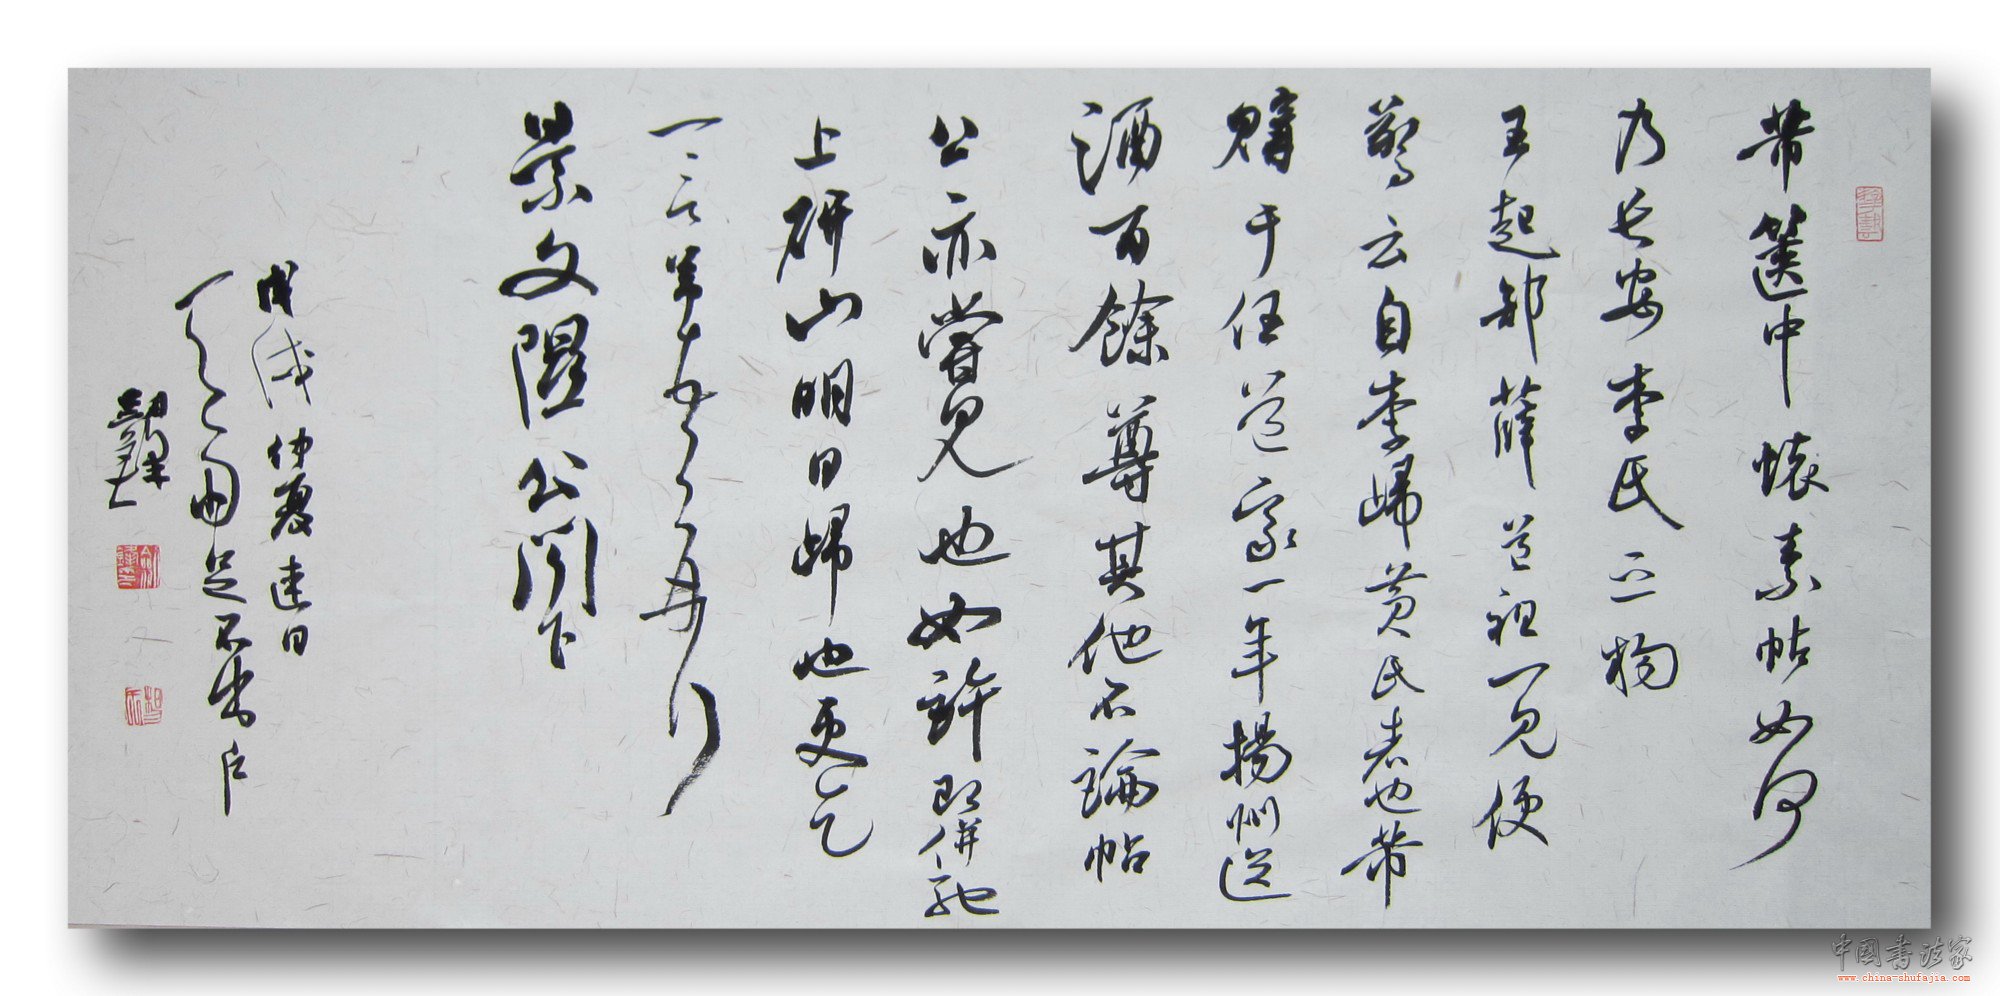 芾篋中懷素帖如何
乃長安李氏之物
王起部薛道祖一見便
驚云自李歸黃氏者也芾
購于任道家一年揚州送
酒百餘尊其他不論帖
公亦嘗見也如許即併馳
上研山明日歸也更乞
一言芾頓首再拜
景文隰公閣下
戊戌仲夏連日
天雨足不出戶
中國書法家
www.china-shufajia.com